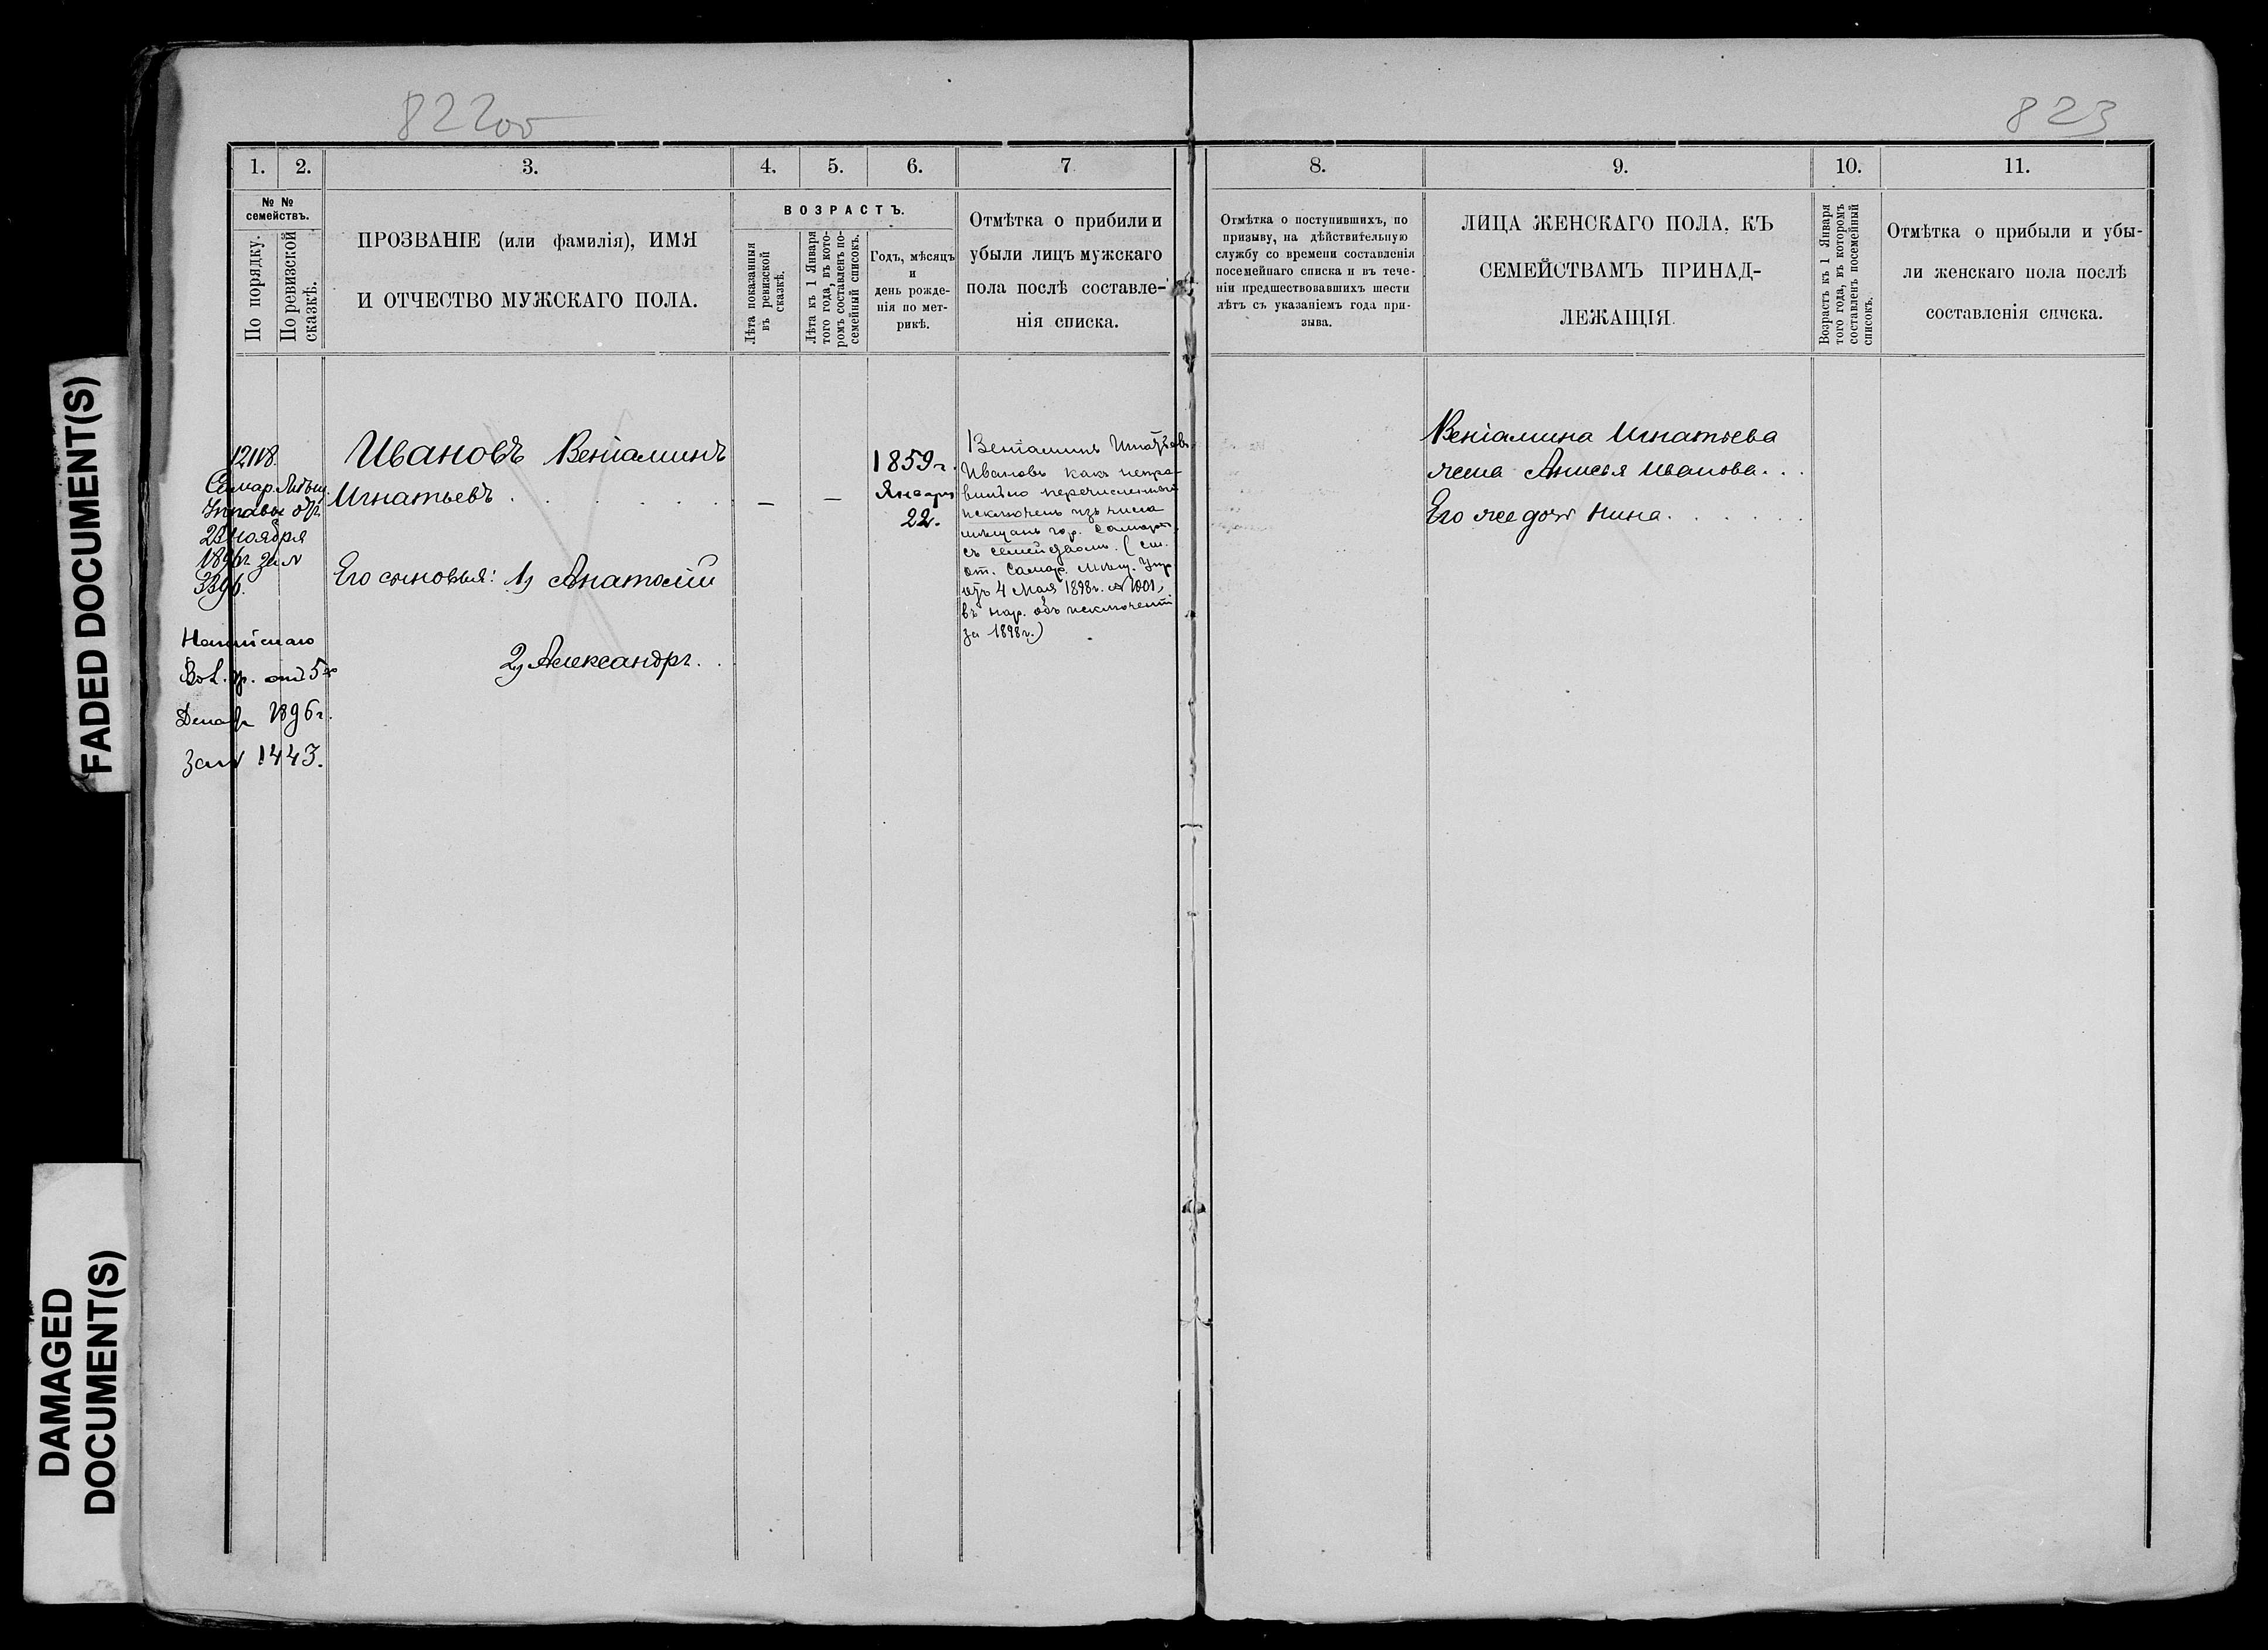 822об
823
1.
2.
3.
4.
5.
6.
7
8.
9.
10.
11.
№ №
семействъ.
По порядку.
По ревизской
сказкѣ.
ПРОЗВАНІЕ (или фамилія), ИМЯ
И ОТЧЕСТВО МУЖСКАГО ПОЛА.
ВОЗРАСТЪ.
Лѣта показанныя
въ ревизской
сказкѣ.
Лѣта къ 1 Января
того года, въ кото-
ромъ составленъ по-
семейный списокъ.
Годъ, мѣсяцъ
и
день рожде-
нія по мет-
рикѣ.
Отмѣтка о прибыли и
убыли лицъ мужскаго
пола послѣ составле-
нія списка.
Отмѣтка о поступившихъ, по
призыву, на дѣйствительную
службу со времени составленія
посемейнаго списка и въ тече-
ніи предшествовавшихъ шести
лѣтъ съ указаніемъ года при-
зыва.
ЛИЦА ЖЕНСКАГО ПОЛА, КЪ
СЕМЕЙСТВАМЪ ПРИНАД-
ЛЕЖАЩІЯ.
Возрастъ къ 1 Января
того года, въ которомъ
составленъ посемейный
списокъ.
Отмѣтка о прибыли и убы-
ли женскаго пола послѣ
составленія списка.
Самар. Мѣщ.
Управы отъ
23 Ноября
1896г за №
3396.
от 5го
Декаб 1896г.
за № 1443.
Ивановъ Веніаминъ
Игнатьевъ . . . . . .
Его сыновья: 1) Анатолій
2) Александръ. .
—
—
1859г.
Января
22.
Веніаминъ Игнатьевъ
Ивановъ какъ непра-
вильно перечисленный
исключенъ изъ числа
мѣщанъ гор. Самары
съ семействомъ. (см.
от. Самар. Мѣщ. Упр.
отъ 4 Мая 1898г. № 1001,
въ нар. объ исключеніи
за 1898г.)
Веніамина Игнатьева
жена Анисья Иванова. . .
Его же дочь Нина. . . . .
FADED DOCUMENT(S)
DAMAGED
DOCUMENT(S)